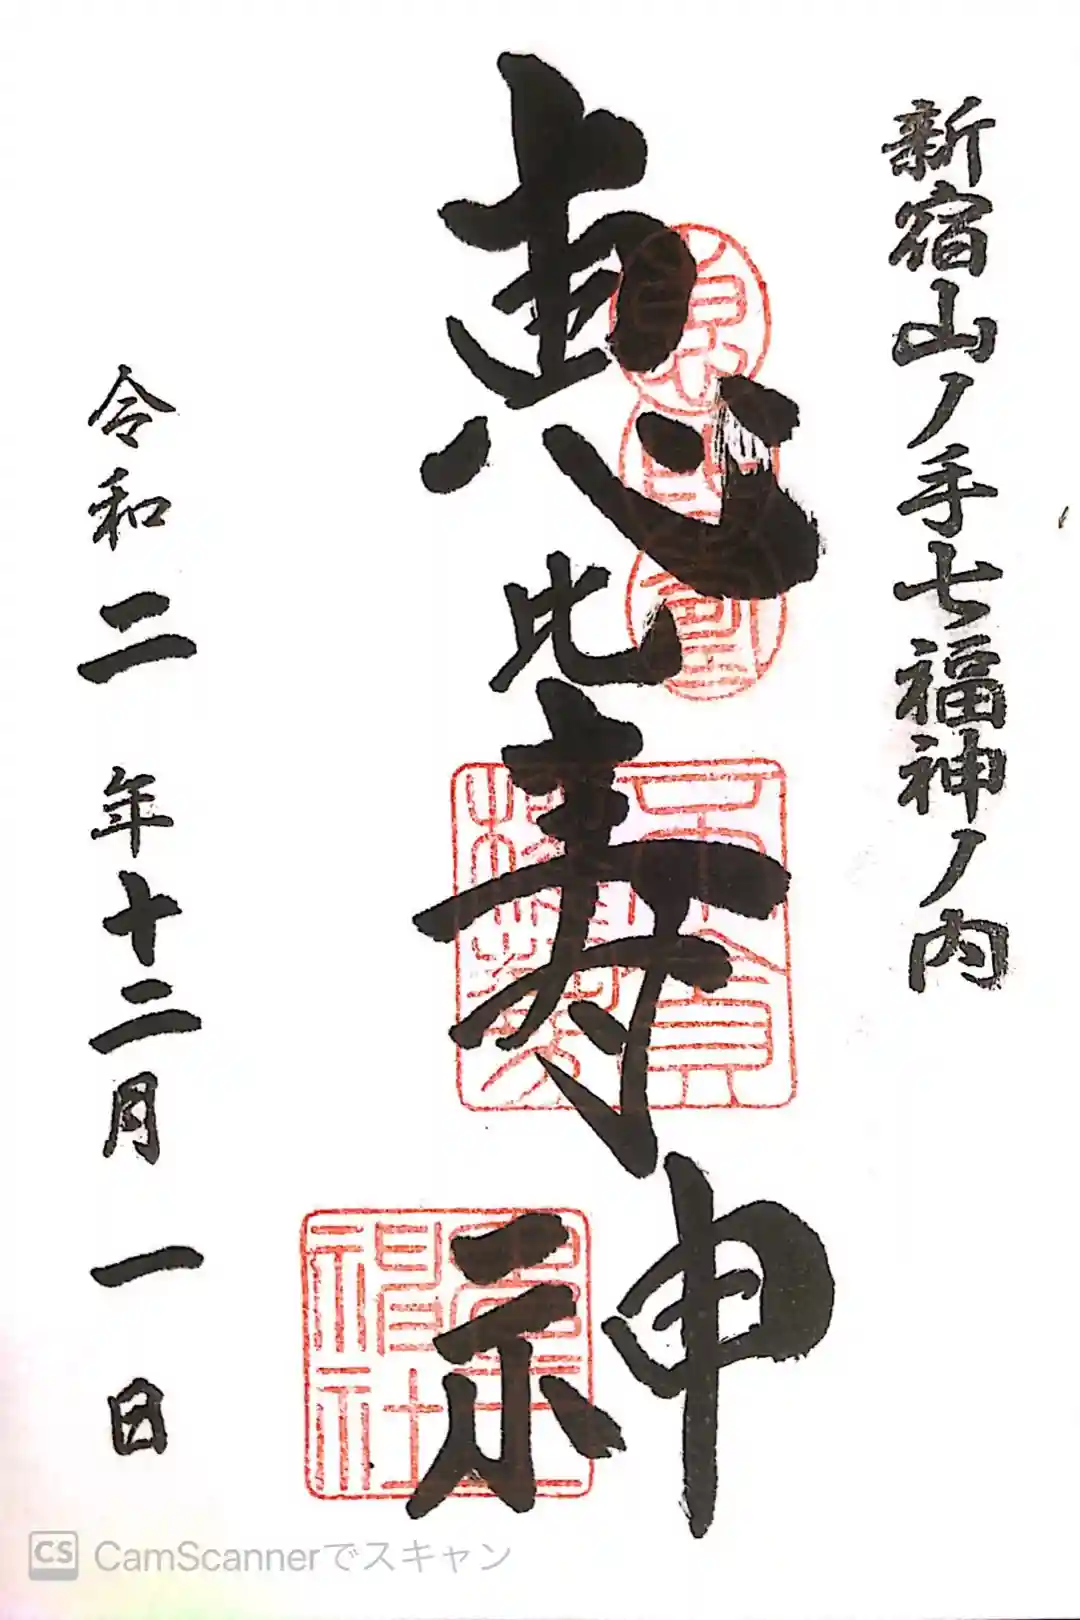 新宿山ノ手七福神ノ内
恵比寿神
令和二年十二月一日
CS CamScannerでスキャン